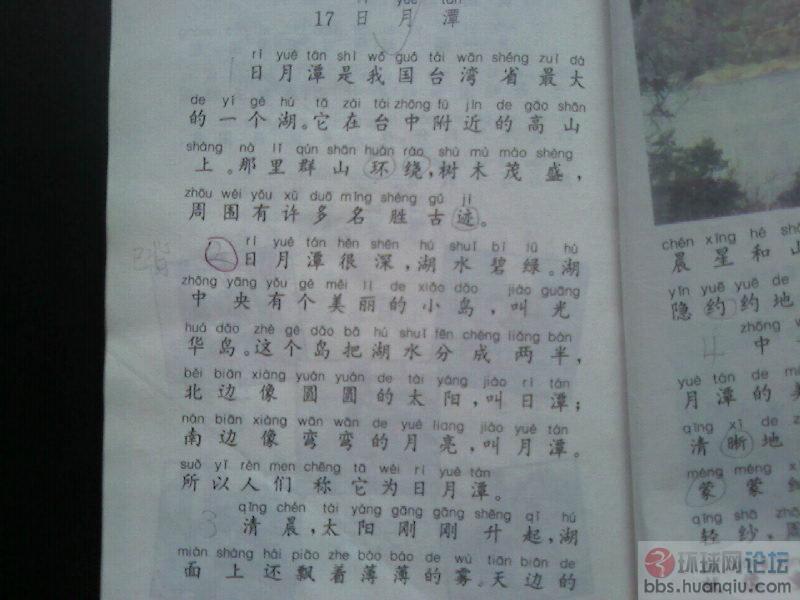 17 日月潭
rì yuè tán shì wǒ guó tái wān shěng zuì dà
日月潭是我国台湾省最大
de yí gè hú tā zài tái zhōng fù jìn de gāo shān
的一个湖。它在台中附近的高山
shàng nà lǐ qún shān huán rào shù mù mào shèng
上。那里群山环绕,树木茂盛,
zhōu wéi yǒu xǔ duō míng shèng gǔ jì
周围有许多名胜古迹。
rì yuè tán hěn shēn hú shuǐ bì lǜ hú
日月潭很深,湖水碧绿。湖
zhōng yāng yǒu gè měi lì de xiǎo dǎo jiào guāng
中央有个美丽的小岛,叫光
huá dǎo zhè gè dǎo bǎ hú shuǐ fēn chéng liǎng bàn
华岛。这个岛把湖水分成两半,
běi biān xiàng yuán yuán de tài yáng jiào rì tán
北边像圆圆的太阳,叫日潭;
nán biān xiàng wān wān de yuè liang jiào yuè tán
南边像弯弯的月亮,叫月潭。
suǒ yǐ rén men chēng tā wéi rì yuè tán
所以人们称它为日月潭。
3
qīng chén tài yáng gāng gāng shēng qǐ hú
清晨,太阳刚刚升起,湖
miàn shàng hái piāo zhe báo báo de wù tiān biān de
面上还飘着薄薄的雾。天边的
chén xīng hé
晨星和
yǐn yuē yuē de
隐约约地
4
zhōng
中
yuè tán de
月潭的
qīng xī de
清晰地
méng méng
蒙蒙
qīng shā
轻纱,
环球网论坛
bbs.huanqiu.com